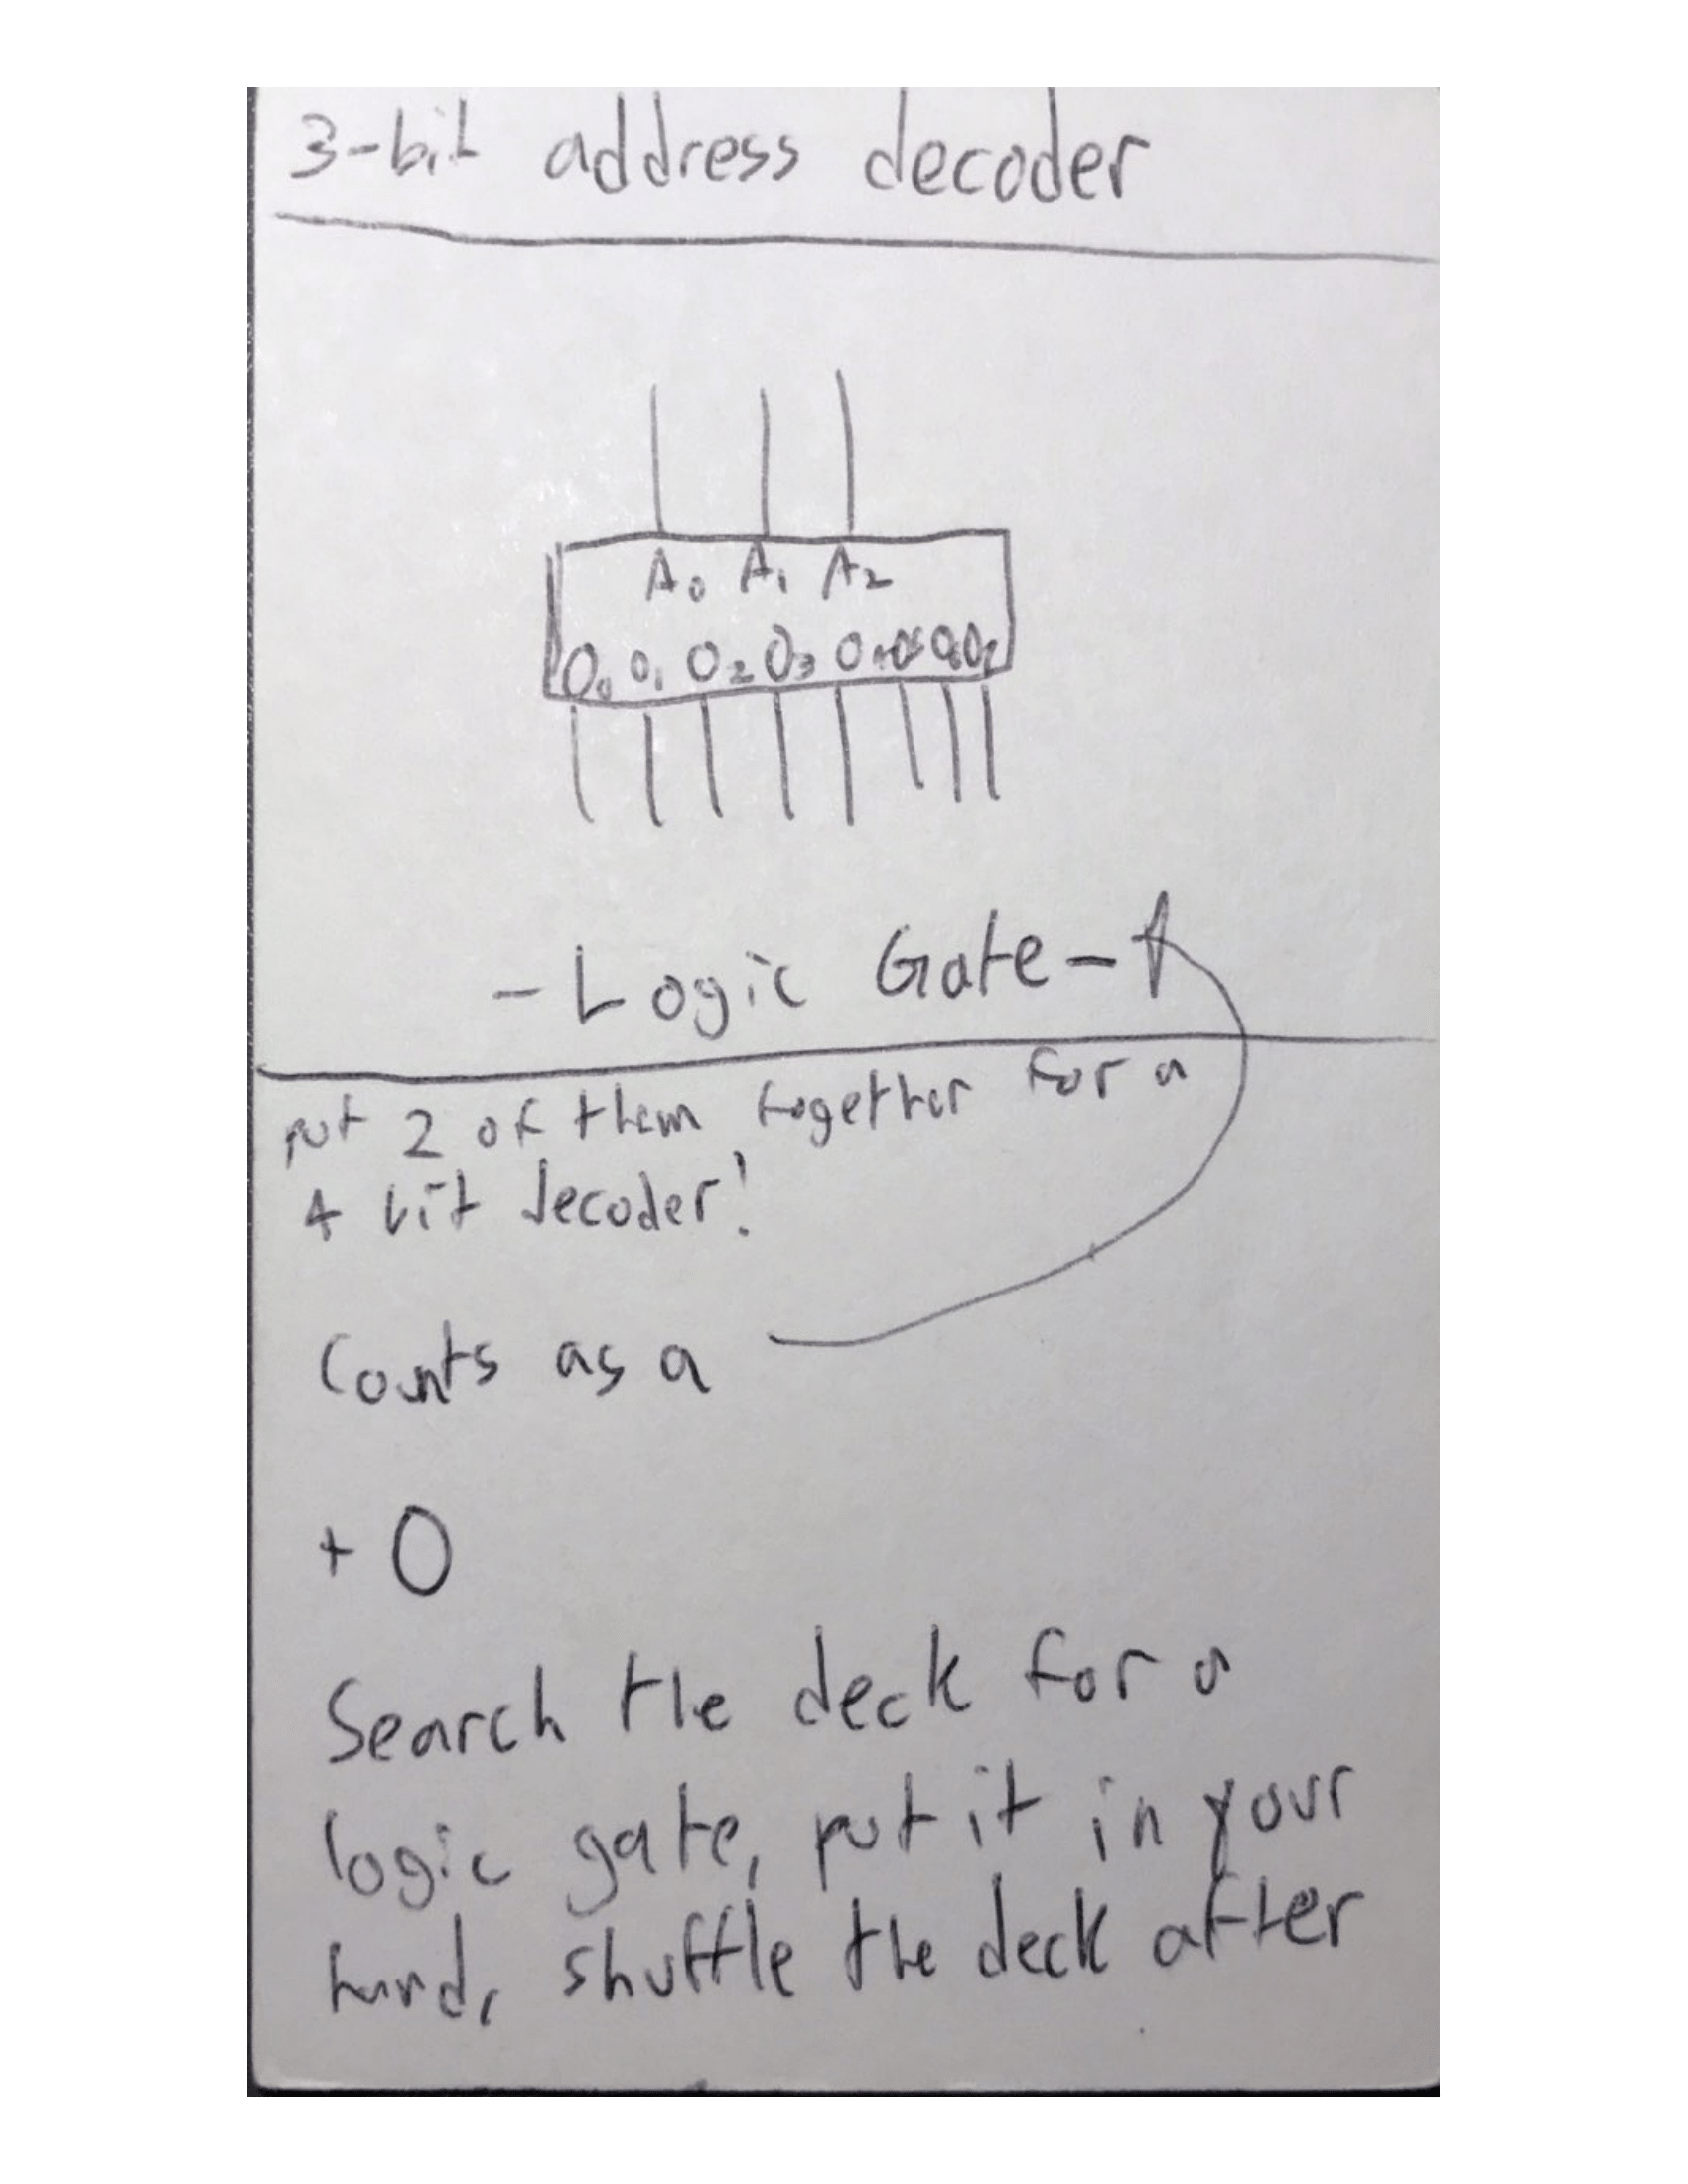 3-bit address decoder
A0 A1 A2
O0 O1 O2 O3 O4 O5 O6 O7
- Logic Gate -
put 2 of them together for a
4 bit decoder!
Counts as a
+0
Search the deck for a
logic gate, put it in your
hand, shuffle the deck after